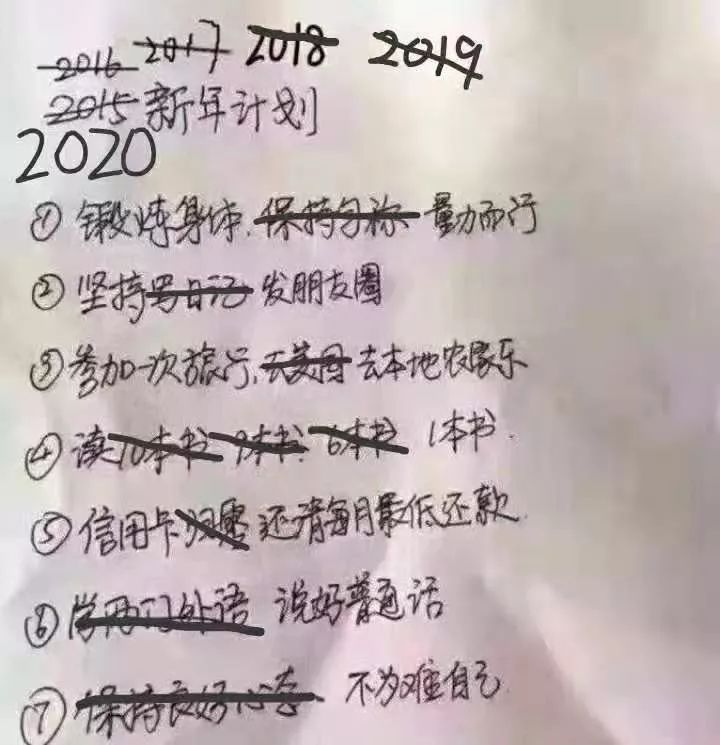 2016 2017 2018 2019
2015 新年计划
2020
① 锻炼身体, 保持匀称 量力而行
② 坚持写日记 发朋友圈
③ 参加一次旅行, 去美国 去本地农家乐
④ 读10本书 9本书. 6本书 1本书.
⑤ 信用卡归零 还清每月最低还款.
⑥ 学两门外语 说好普通话
⑦ 保持良好心态 不为难自己